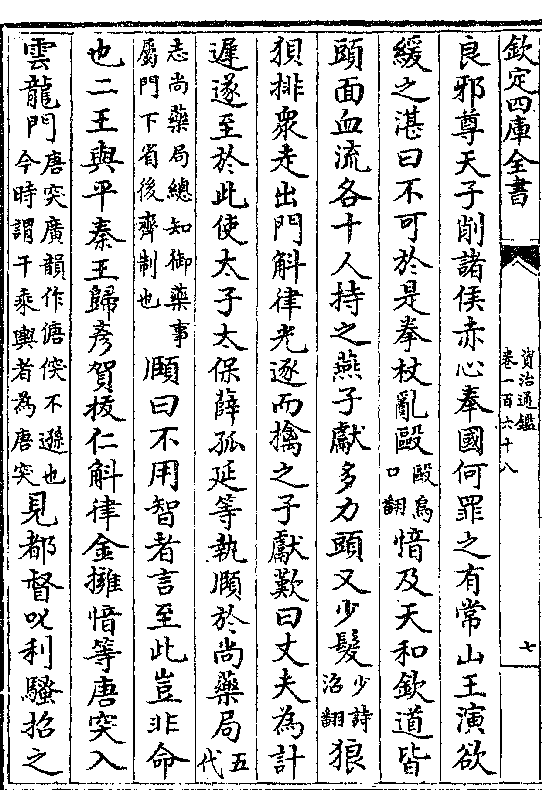 欽定四庫全書
資治通鑑
卷一百六十八
七
良邪尊天子削諸侯赤心奉國何罪之有常山王演欲
緩之湛曰不可於是拳杖亂毆毆烏口翻愔及天和欽道皆
頭面血流各十人持之燕子獻多力頭又少髮少詩沼翻狼
狽排衆走出門斛律光逐而擒之子獻歎曰丈夫為計
遲遂至於此使太子太保薛孤延等執頤於尚藥局五代
志尚藥局總知御藥事屬門下省後齊制也頤曰不用智者言至此豈非命
也二王與平秦王歸彥賀拔仁斛律金擁愔等唐突入
雲龍門唐突廣韻作傏傸不遜也今時謂干乘輿者為唐突見都督叱利騷招之